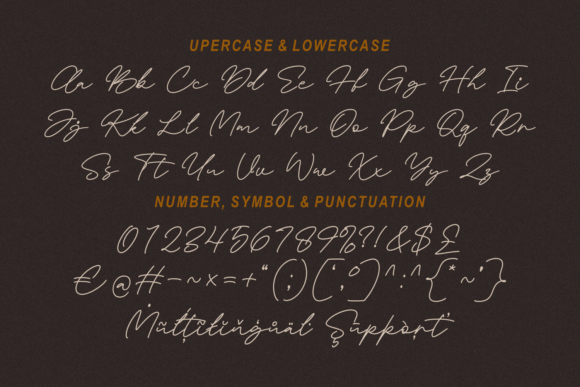 UPERCASE & LOWERCASE
Aa Bb Cc Dd Ee Ff Gg Hh Ii
Jj Kk Ll Mm Nn Oo Pp Qq Rr
Ss Tt Uu Vv Ww Xx Yy Zz
NUMBER, SYMBOL & PUNCTUATION
0123456789%?!&$£
€@#-~×=+“(;)[‘,°]^:^{*~’}
Mũltįĩňğůäl Şüppȯrť